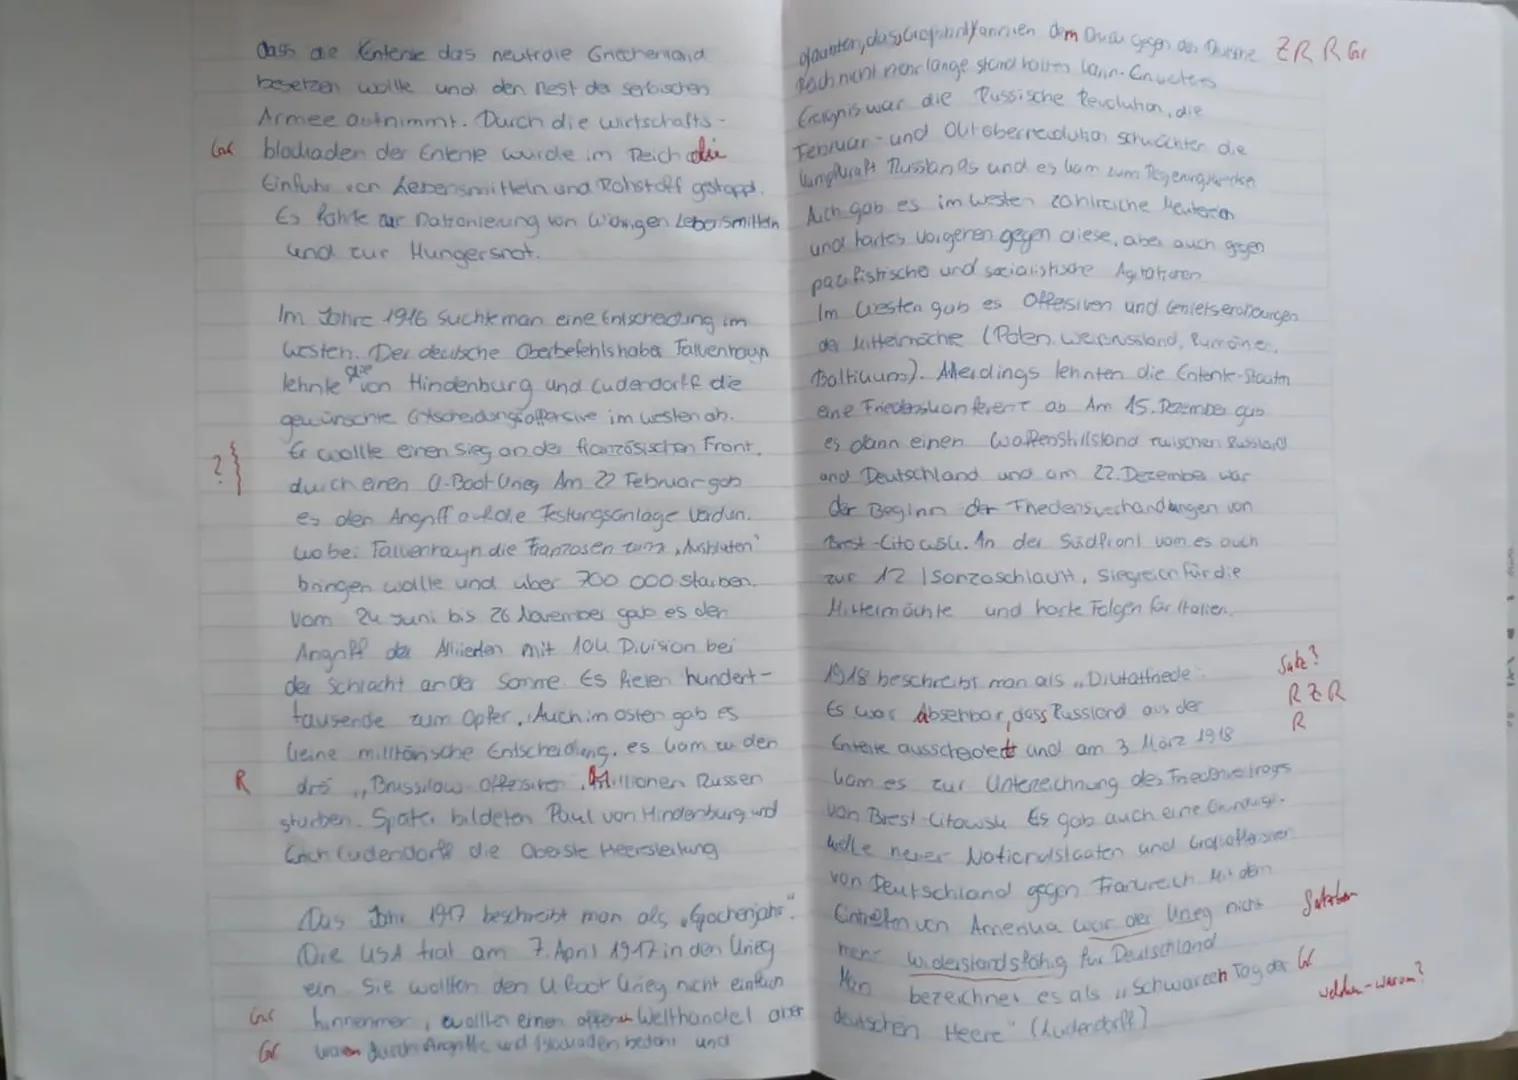 dass die Entente das neutrale Griechenland
besetzen wollte und den Rest der serbischen
Armee aufnimmt. Durch die Wirtschafts-
Gr blockaden der Entente wurde im Reich die
Einfuhr von Lebensmitteln und Rohstoff gestoppt.
Es führte zur Rationierung von wenigen Lebensmitteln
und zur Hungersnot.
Im Jahre 1916 suchte man eine Entscheidung im
Westen. Der deutsche Oberbefehlshaber Falkenhayn
lehnte die von Hindenburg und Ludendorff die
gewünschte Entscheidungsoffensive im Westen ab.
Er wollte einen Sieg an der französischen Front,
? durch einen U-Boot Krieg Am 22 Februar gab
es den Angriff auf die Festungsanlage Verdun.
wobei Falkenhayn die Franzosen zum „Ausbluten"
bringen wollte und über 700 000 starben.
Vom 24 Juni bis 26 November gab es den
Angriff der Alliierten mit 104 Division bei
der Schlacht an der Somme. Es fielen hundert-
tausende zum Opfer. Auch im Osten gab es
keine militärische Entscheidung, es kam zu den
R drei „Brussilow Offensiven. Millionen Russen
starben. Später bildeten Paul von Hindenburg und
Erich Ludendorff die Oberste Heeresleitung
Das Jahr 1917 beschreibt man als „Epochenjahr".
Die USA trat am 7. April 1917 in den Krieg
ein. Sie wollten den U Boot Krieg nicht einfach
Gr hinnehmen, wollten einen offenen Welthandel aber
Gr waren durch Angriffe und Blockaden bedroht und
glaubten, dass Großbritannien dem Druck gegen der Marine ZR R Gr
nicht mehr lange stand halten kann. Ein weiteres
Ereignis war die Russische Revolution, die
Februar- und Oktoberrevolution schwächten die
Kampfkraft Russlands und es kam zum Regierungswechsel
Auch gab es im Westen zahlreiche Meutereien
und hartes Vorgehen gegen diese, aber auch gegen
pazifistische und sozialistische Agitationen
Im Westen gab es Offensiven und Gebietseroberungen
der Mittelmächte (Polen, Weissrussland, Rumänien,
Baltikum). Allerdings lehnten die Entente-Staaten
eine Friedenskonferenz ab Am 15. Dezember gab
es dann einen Waffenstillstand zwischen Russland
und Deutschland und am 22. Dezember war
der Beginn der Friedensverhandlungen von
Brest-Litowsk. An der Südfront kam es auch
zur 12 Isonzoschlacht, siegreich für die
Mittelmächte und harte Folgen für Italien.
1918 beschreibt man als „Diktatfriede". Satz?
Es war Absehbar, dass Russland aus der R Z R
Entente ausscheidet und am 3 März 1918 R
kam es zur Unterzeichnung des Friedensvertrags
von Brest Litowsk Es gab auch eine Gründungs-
welle neuer Nationalstaaten und Großoffensiven
von Deutschland gegen Frankreich Mit dem
Eintreten von Amerika war der Krieg nicht Satzbau
mehr widerstandsfähig für Deutschland
Man bezeichnet es als „Schwarzen Tag der Gr
deutschen Heere" (Ludendorff) welchen - warum?